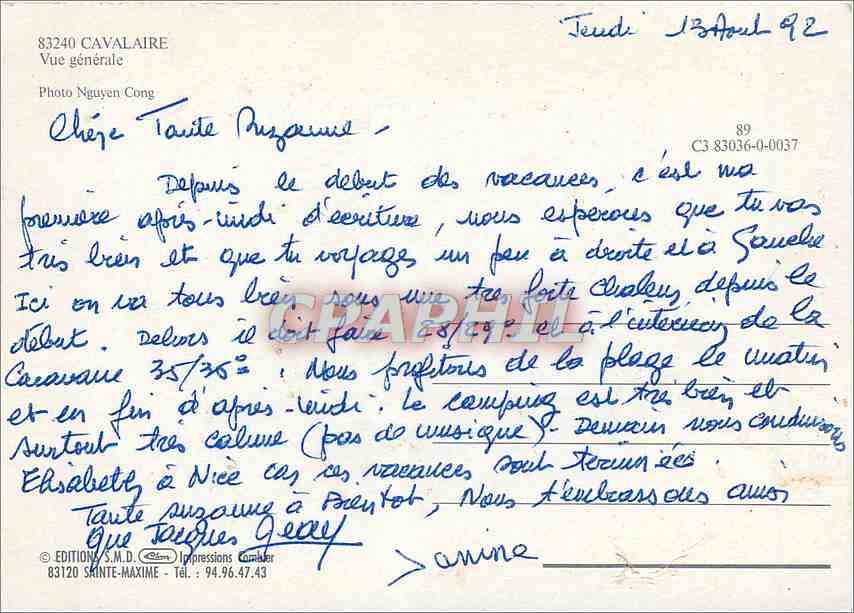 Jeudi 13 Août 92
83240 CAVALAIRE
Vue générale
Photo Nguyen Cong
89
C3 83036-0-0037
Chère Tante Suzanne -
Depuis le début des vacances, c'est ma
première après-midi d'écriture, nous esperons que tu vas
très bien et que tu voyages un peu à droite et à Gauche.
Ici on va tous bien sous une très forte chaleur depuis le
début. Dehors il doit faire 28/29° et à l'intérieur de la
Caravane 35/36°. Nous profitons de la plage le matin
et en fin d'après-midi. Le camping est très bien et
surtout très calme (pas de musique). Demain nous conduisons
Elisabeth à Nice car ses vacances sont terminées.
Tante Suzanne à Bientôt, Nous t'embrassons ainsi
que Jacques
Janine
CPAPHIL
© EDITIONS S.M.D. Impressions Combier
83120 SAINTE-MAXIME - Tél. : 94.96.47.43